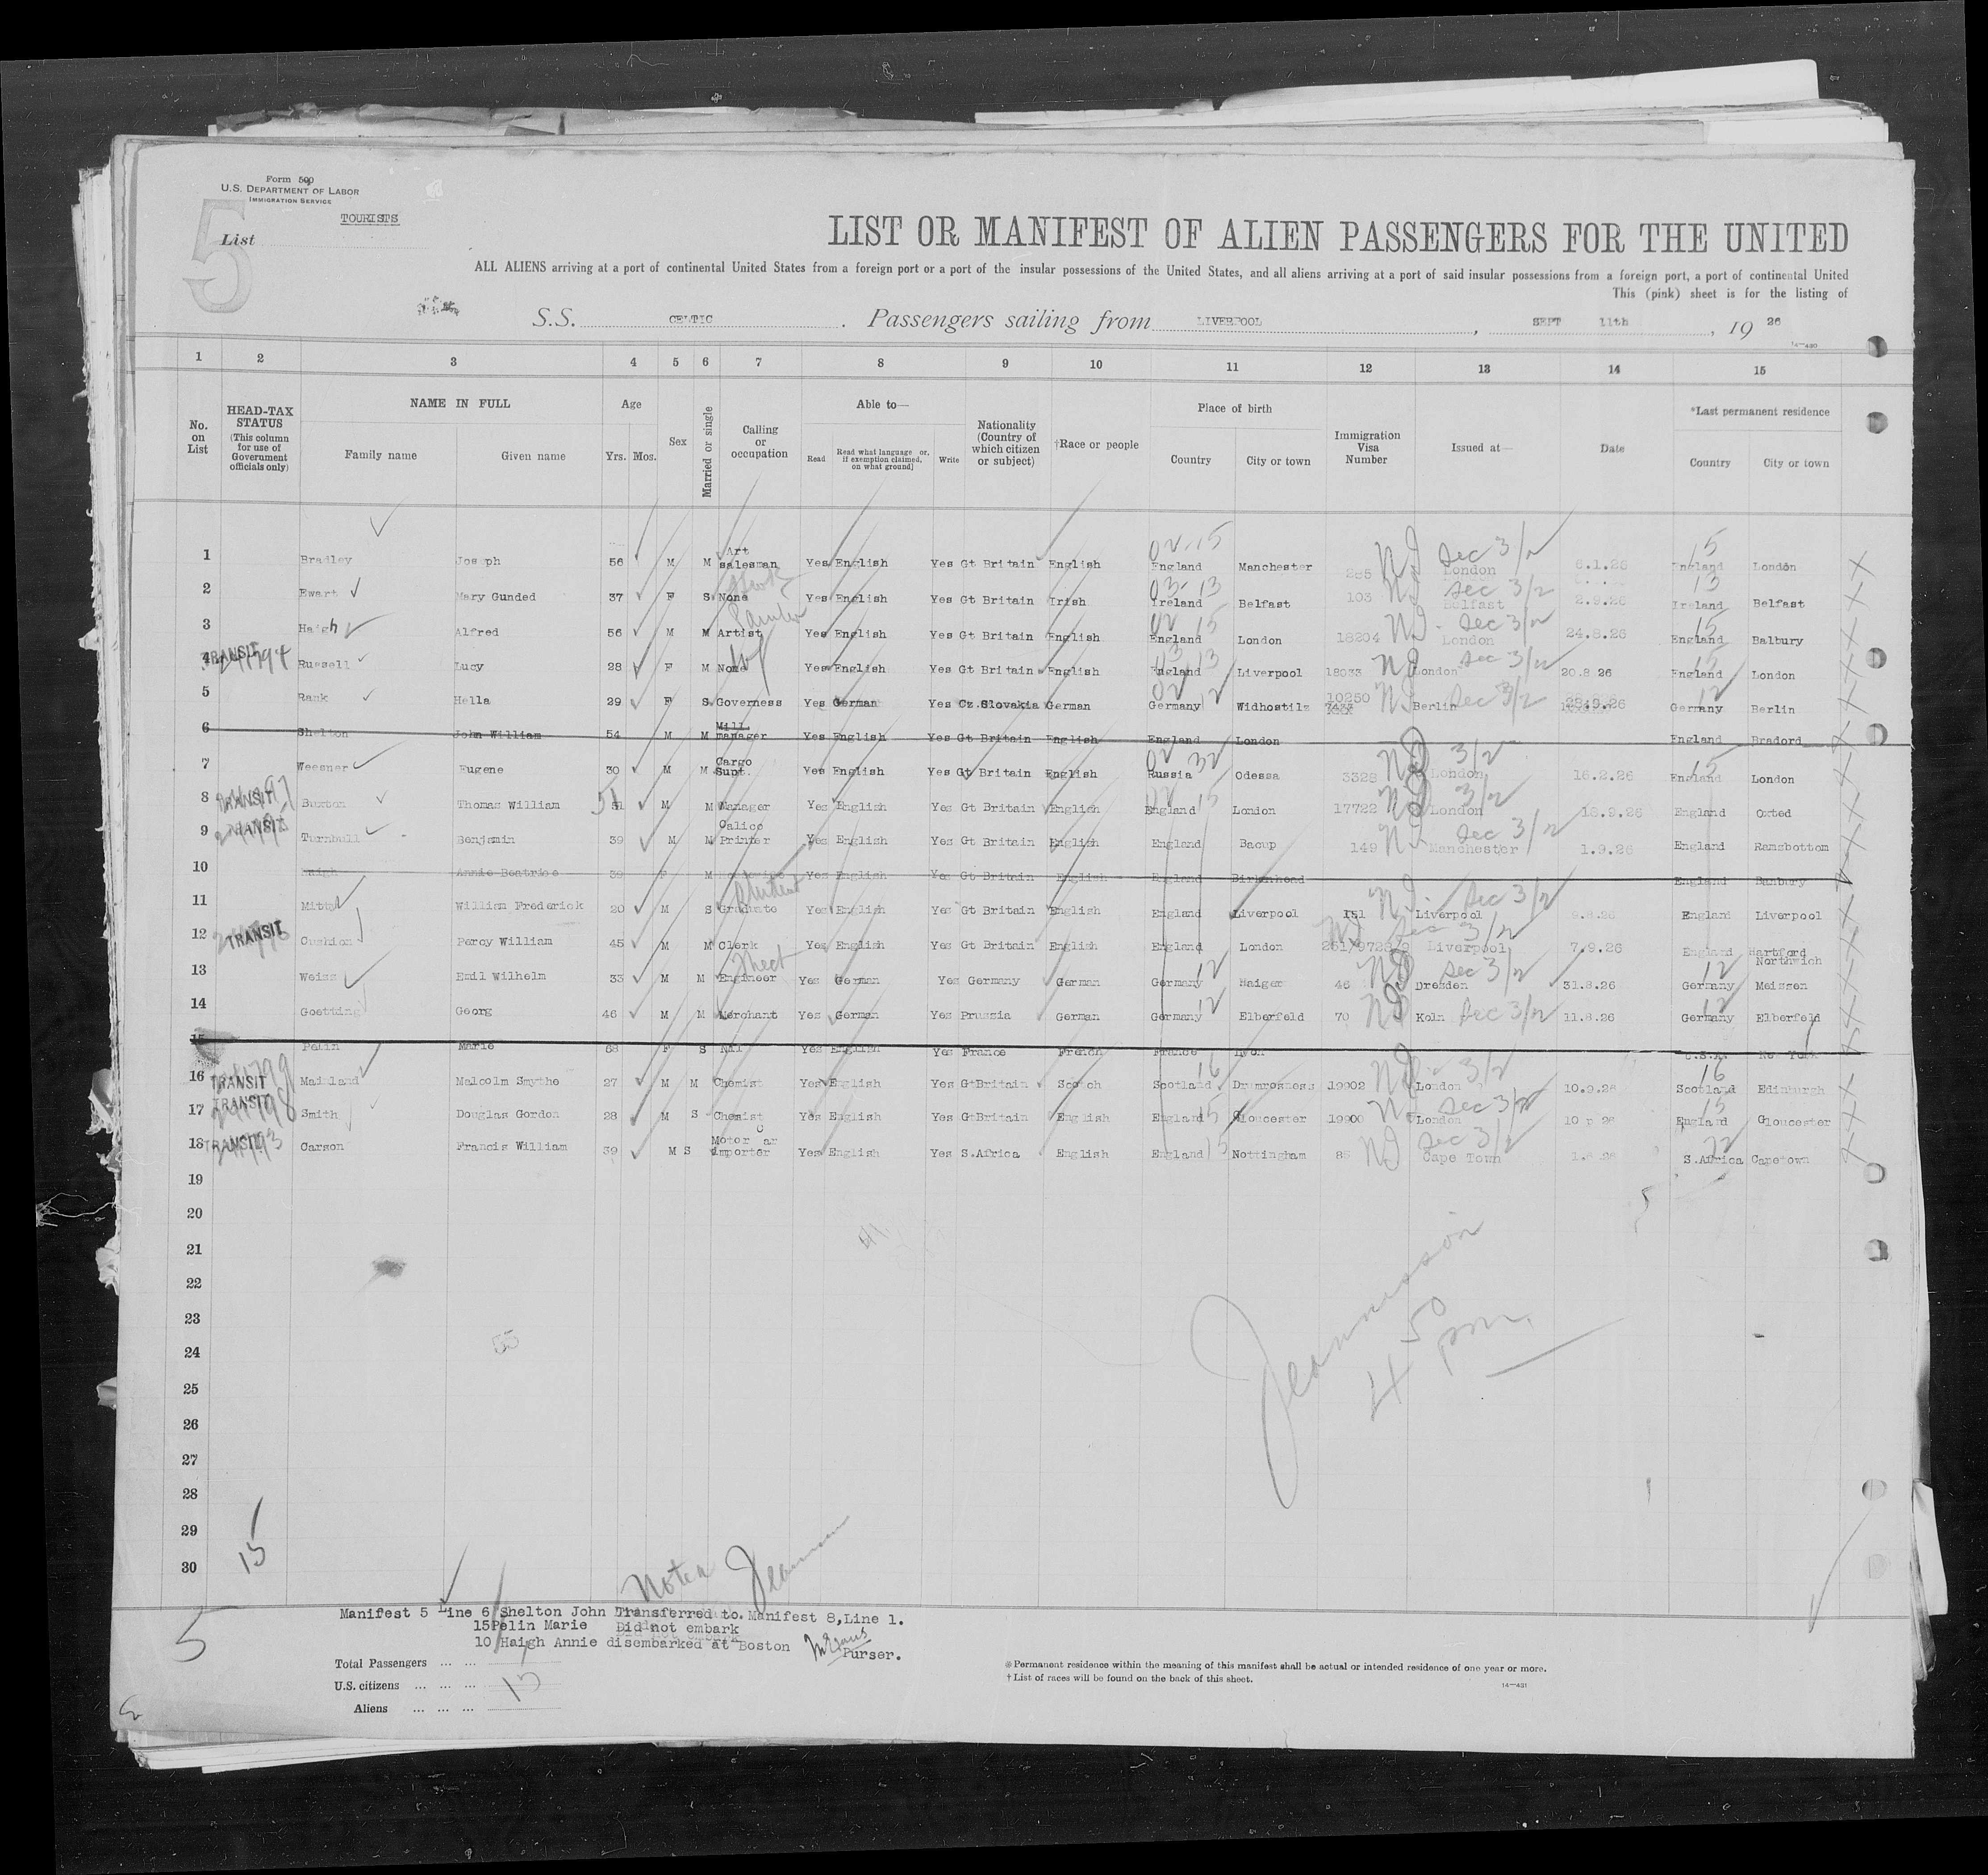 Form 500
U.S. DEPARTMENT OF LABOR
IMMIGRATION SERVICE
TOURISTS
5
List
LIST OR MANIFEST OF ALIEN PASSENGERS FOR THE UNITED
ALL ALIENS arriving at a port of continental United States from a foreign port or a port of the insular possessions of the United States, and all aliens arriving at a port of said insular possessions from a foreign port, a port of continental United
This (pink) sheet is for the listing of
S.S. CELTIC. Passengers sailing from LIVERPOOL, SEPT 11th, 19 26
14—430
1 2 3 4 5 6 7 8 9 10 11 12 13 14 15
No. on List
HEAD-TAX STATUS (This column for use of Government officials only)
NAME IN FULL
Family name Given name
Age
Yrs. Mos.
Sex
Married or single
Calling or occupation
Able to—
Read Read what language [or, if exemption claimed, on what ground] Write
Nationality (Country of which citizen or subject)
†Race or people
Place of birth
Country City or town
Immigration Visa Number
Issued at—
Date
*Last permanent residence
Country City or town
02-15 Sec 3/2 15
1 Bradley Joseph 56 M M Art salesman Yes English Yes Gt Britain English England Manchester 285 ND London 6.1.26 England London
03-13 Sec 3/2 13
2 Ewart Mary Gunded 37 F S None Yes English Yes Gt Britain Irish Ireland Belfast 103 ND Belfast 2.9.26 Ireland Belfast
02 15 Sec 3/2 15
3 Haigh Alfred 56 M M Artist Yes English Yes Gt Britain English England London 18204 ND London 24.8.26 England Balbury
13 Sec 3/2 15
4 TRANSIT Russell Lucy 28 F M None Yes English Yes Gt Britain English England Liverpool 18033 ND London 20.8.26 England London
02 12 Sec 3/2 12
5 Rank Hella 29 F S Governess Yes German Yes Cz.Slovakia German Germany Widhostilz 10250 ND Berlin Germany Berlin
6 Shelton John William 54 M M Mill manager Yes English Yes Gt Britain English England London England Bradord
02 32 3/2 15
7 Weesner Eugene 30 M M Cargo Supt. Yes English Yes Gt Britain English Russia Odessa 3328 ND London 16.2.26 England London
15 3/2
8 TRANSIT Buxton Thomas William 51 M M Manager Yes English Yes Gt Britain English England London 17722 ND London 18.9.26 England Oxted
Sec 3/2
9 TRANSIT Turnbull Benjamin 39 M M Calico Printer Yes English Yes Gt Britain English England Bacup 149 Manchester 1.9.26 England Ramsbottom
10 Haigh Annie Beatrice 39 F M Yes English Yes Gt Britain English England Birkenhead England Banbury
Student Sec 3/2
11 Mitty William Frederick 20 M S Graduate Yes English Yes Gt Britain English England Liverpool 151 Liverpool 9.8.26 England Liverpool
Sec 3/2
12 TRANSIT Cushion Percy William 45 M M Clerk Yes English Yes Gt Britain English England London Liverpool 7.9.26 England Hartford Northwich
12 Sec 3/2 12
13 Weiss Emil Wilhelm 33 M M Engineer Yes German Yes Germany German Germany Haiger 46 ND Dresden 31.8.26 Germany Meissen
12 Sec 3/2 12
14 Goetting Georg 46 M M Merchant Yes German Yes Prussia German Germany Elberfeld 70 ND Koln 11.8.26 Germany Elberfeld
15 Pelin Marie 68 F S Nil Yes English Yes France French France Lyon U.S.A. New York
16 3/2 16
16 TRANSIT Mainland Malcolm Smythe 27 M M Chemist Yes English Yes GtBritain Scotch Scotland Drumrosness 19902 ND London 10.9.26 Scotland Edinburgh
15 Sec 3/2 15
17 TRANSIT Smith Douglas Gordon 28 M S Chemist Yes English Yes GtBritain English England Gloucester 19900 London England Gloucester
15 Sec 3/2 22
18 TRANSIT Carson Francis William 39 M S Motor Car importer Yes English Yes S.Africa English England Nottingham 85 ND Cape Town S.Africa Capetown
19
20
21
22
23
24 55
25
26
27
28
29
30
15
4 50 pm
Noted
Manifest 5 Line 6 Shelton John Transferred to Manifest 8,Line 1.
15 Pelin Marie Did not embark
10 Haigh Annie disembarked at Boston
Purser.
5
Total Passengers ... ...
U.S. citizens ... ... ... 15
Aliens ... ... ...
*Permanent residence within the meaning of this manifest shall be actual or intended residence of one year or more.
†List of races will be found on the back of this sheet.
14—431